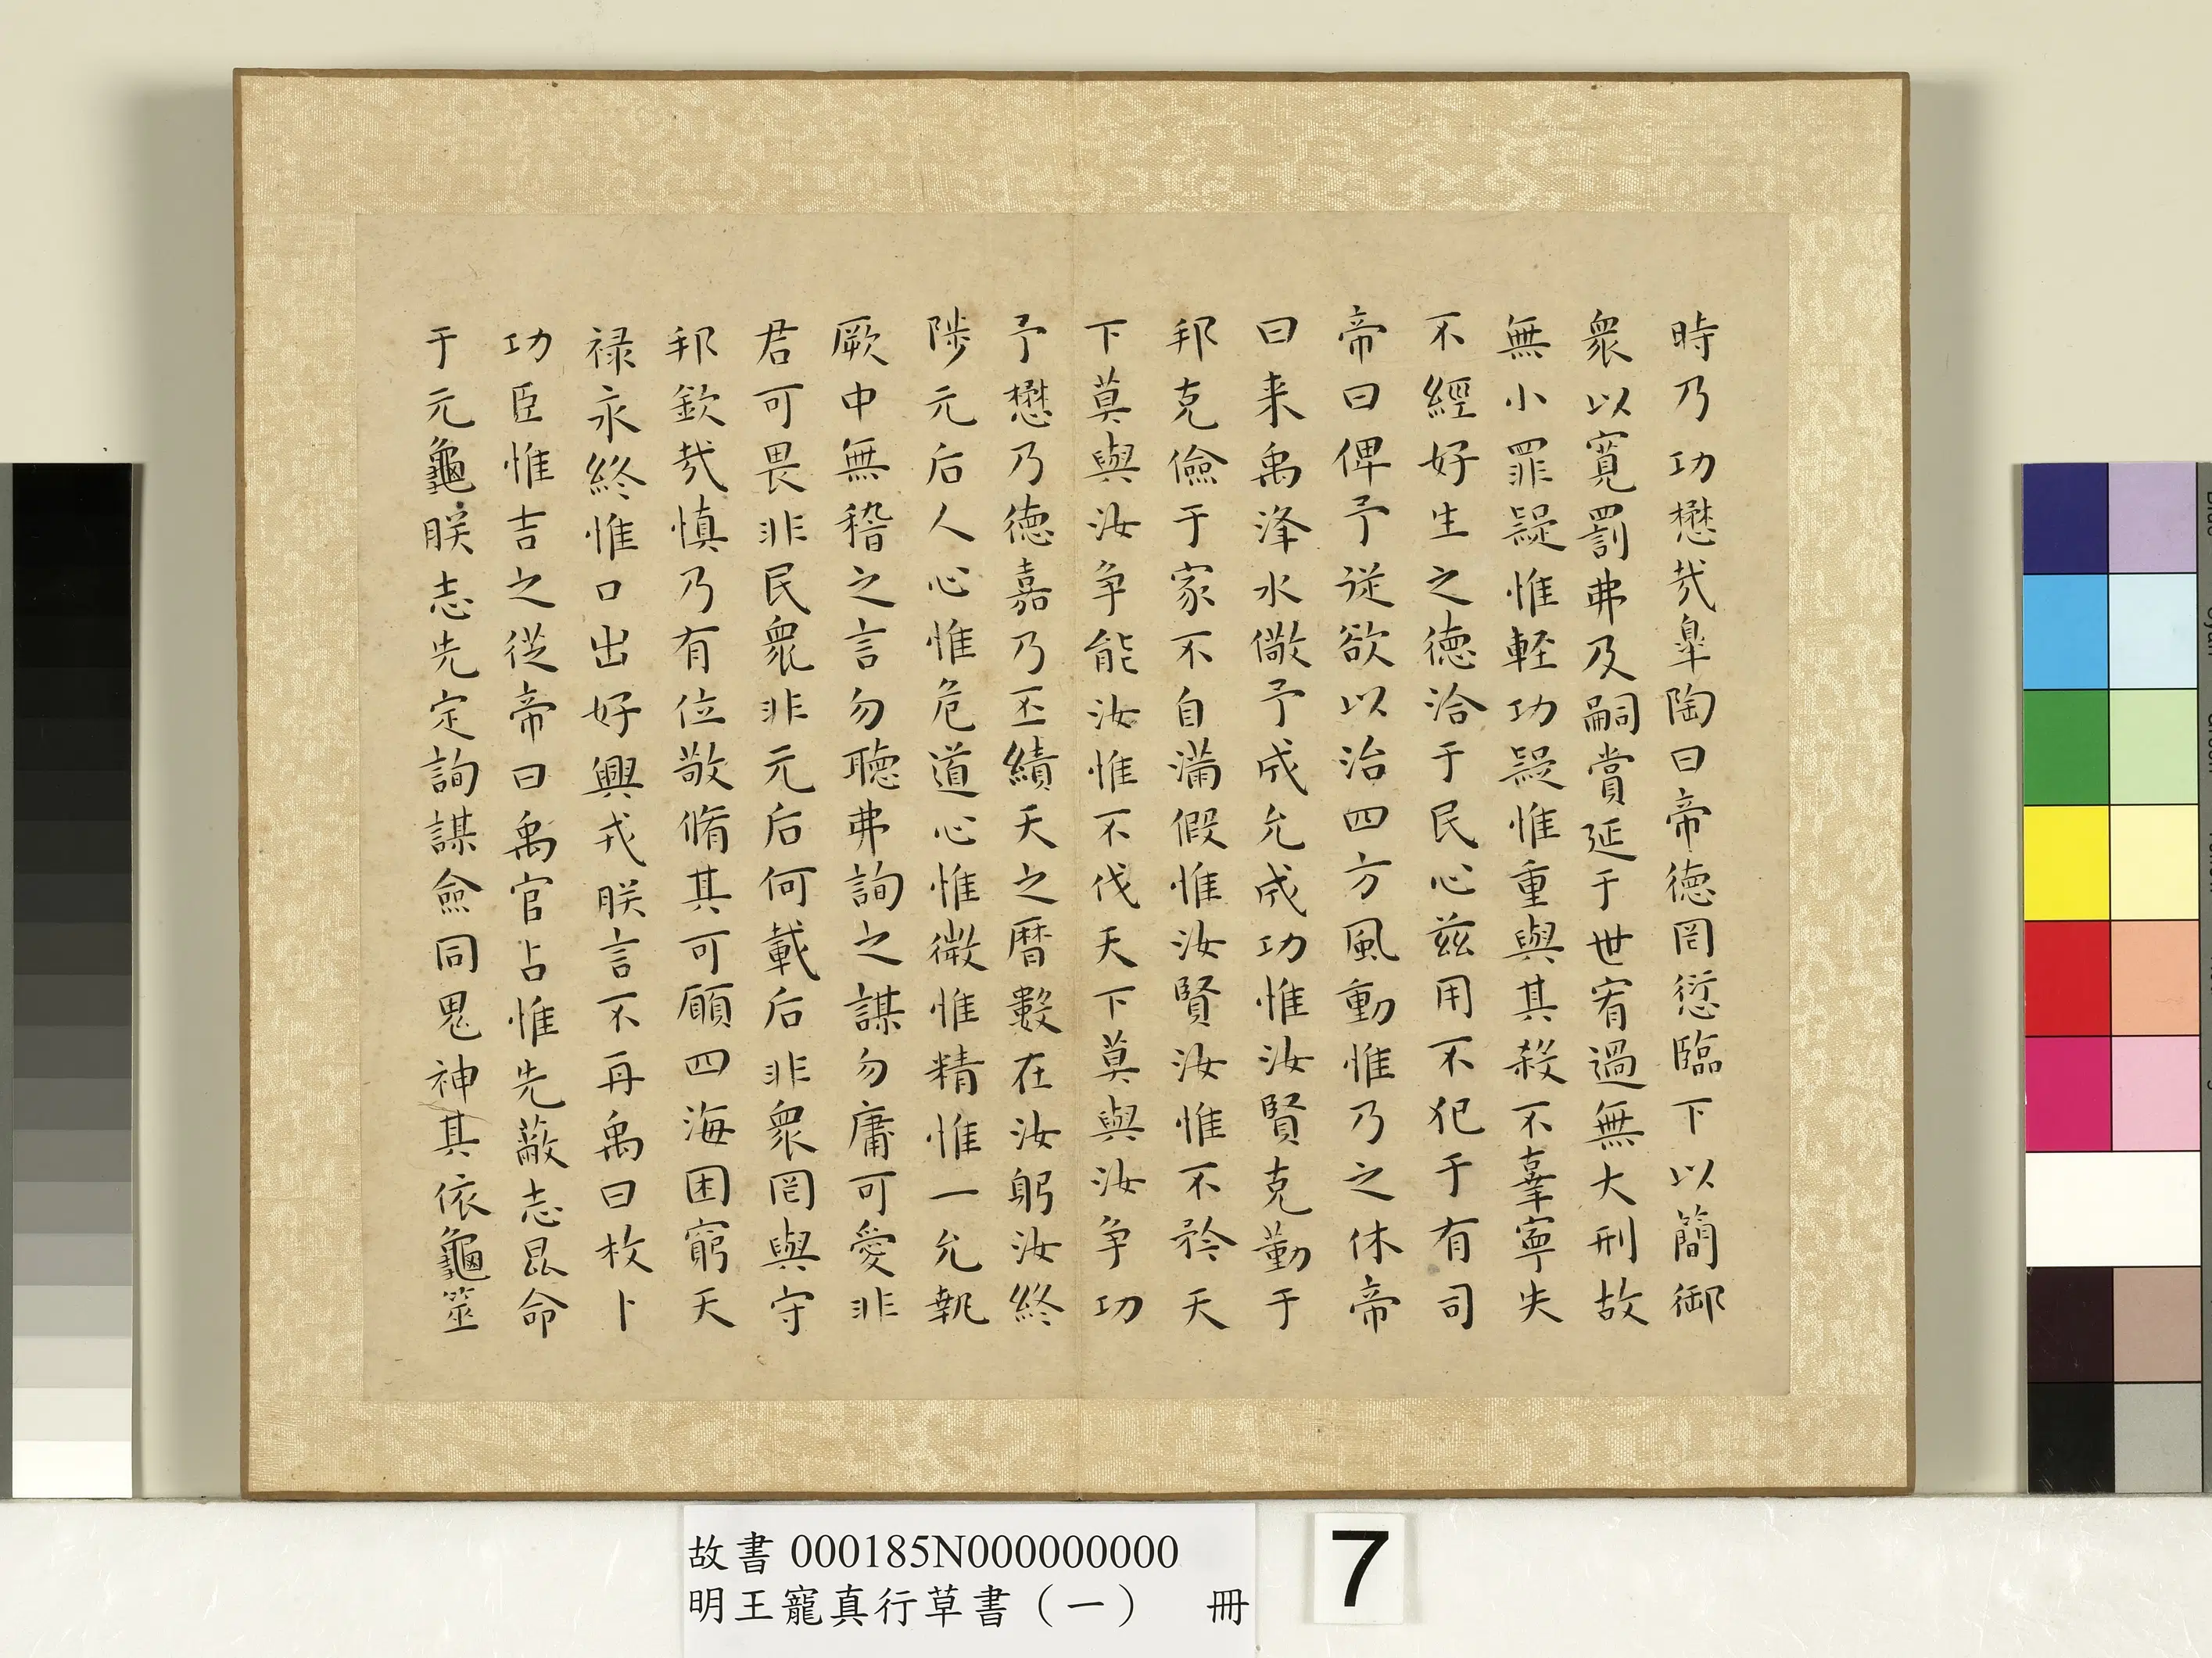 時乃功懋哉皐陶曰帝德罔愆臨下以簡御
衆以寬罰弗及嗣賞延于世宥過無大刑故
無小罪疑惟輕功疑惟重與其殺不辜寧失
不經好生之德洽于民心茲用不犯于有司
帝曰俾予從欲以治四方風動惟乃之休帝
曰来禹洚水儆予成允成功惟汝賢克勤于
邦克儉于家不自滿假惟汝賢汝惟不矜天
下莫與汝爭能汝惟不伐天下莫與汝爭功
予懋乃德嘉乃丕績天之曆數在汝躬汝終
陟元后人心惟危道心惟微惟精惟一允執
厥中無稽之言勿聽弗詢之謀勿庸可愛非
君可畏非民衆非元后何載后非衆罔與守
邦欽哉慎乃有位敬脩其可願四海困窮天
祿永終惟口出好興戎朕言不再禹曰枚卜
功臣惟吉之從帝曰禹官占惟先蔽志昆命
于元龜朕志先定詢謀僉同鬼神其依龜筮
故書 000185N000000000
明王寵真行草書（一） 冊
7